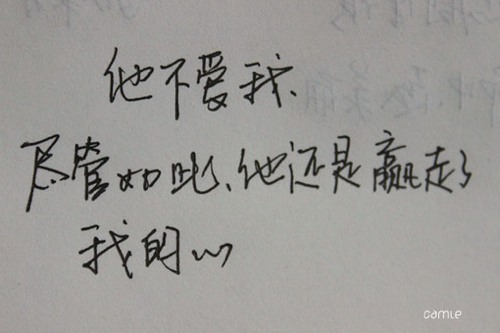 他不爱我、
尽管如此、他还是赢走了
我的心
camie